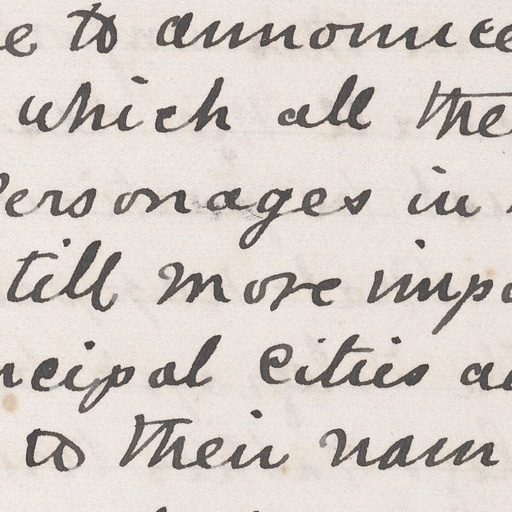 e to announce
which all the
Personages in
till more impo
ncipal cities a
to their nam